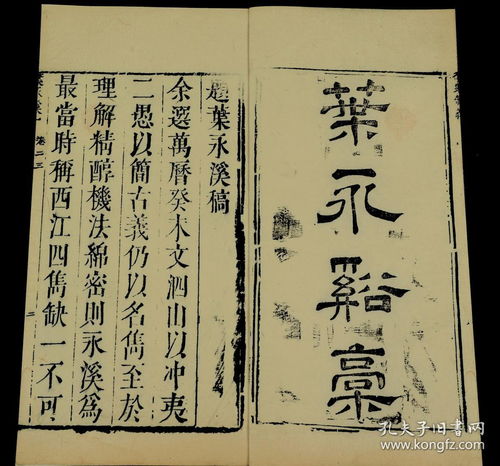 葉永谿稾
題葉永溪稿
余選萬曆癸未文泗山以冲夷
二愚以簡古義仍以名雋至於
理解精醇機法綿密則永溪爲
最當時稱西江四雋缺一不可
二
孔夫子旧书网
www.kongfz.com